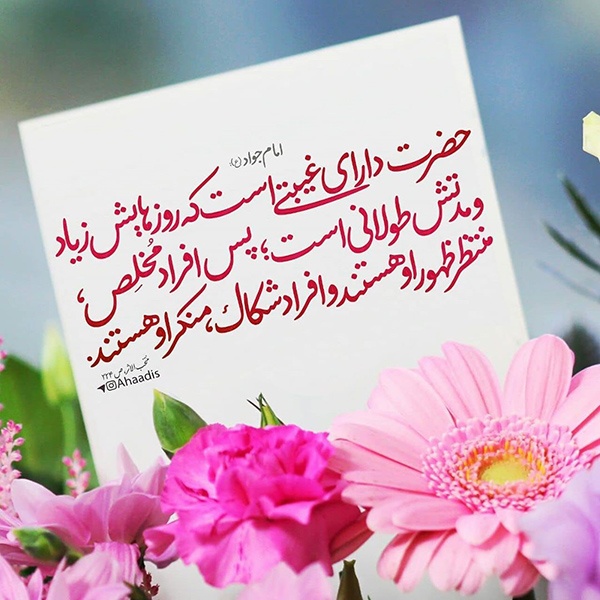 امام جواد (ع):
حضرت دارای غیبتی است که روزهایش زیاد
و مدتش طولانی است؛ پس افراد مُخلِص،
منتظر ظهور او هستند و افراد شکاك، منکر او هستند.
منتخب الاثر، ص ۲۲۴
@Ahaadis